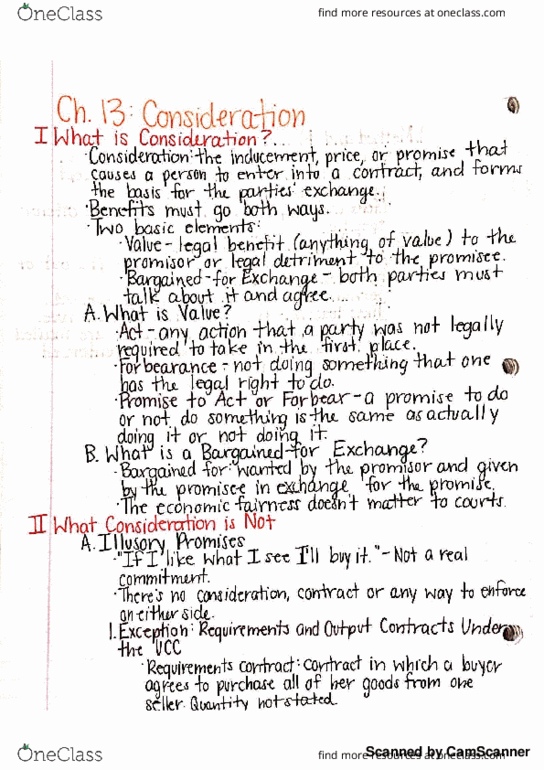 OneClass
find more resources at oneclass.com
Ch. 13: Consideration
I What is Consideration?
·Consideration: the inducement, price, or promise that
causes a person to enter into a contract, and forms
the basis for the parties' exchange.
·Benefits must go both ways.
·Two basic elements:
·Value - legal benefit (anything of value) to the
promisor or legal detriment to the promisee.
·Bargained-for Exchange - both parties must
talk about it and agree.
A. What is Value?
·Act - any action that a party was not legally
required to take in the first place.
·Forbearance - not doing something that one
has the legal right to do.
·Promise to Act or Forbear - a promise to do
or not do something is the same as actually
doing it or not doing it.
B. What is a Bargained-for Exchange?
·Bargained for: wanted by the promisor and given
by the promisee in exchange for the promise.
·The economic fairness doesn't matter to courts.
II What Consideration is Not
A. Illusory Promises
·"If I like what I see I'll buy it." - Not a real
commitment.
·There's no consideration, contract or any way to enforce
on either side.
1. Exception: Requirements and Output Contracts Under
the UCC
·Requirements contract: contract in which a buyer
agrees to purchase all of her goods from one
seller. Quantity not stated.
OneClass
find more resources at oneclass.com
Scanned by CamScanner